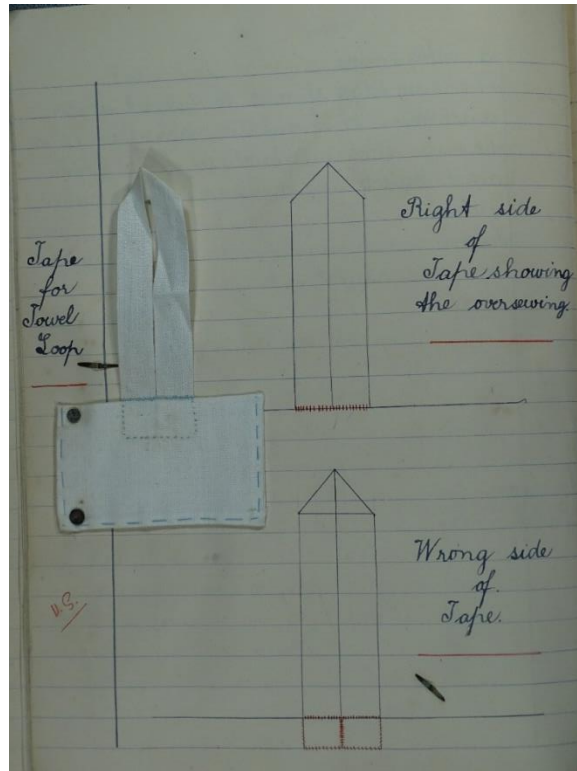 Tape
for
Towel
Loop
Right side
of
Tape showing
the oversewing.
Wrong side
of.
Tape.